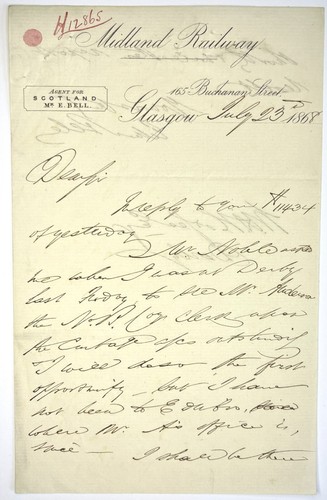 H/12865
Midland Railway
165 Buchanan Street
AGENT FOR
SCOTLAND
MR. E. BELL.
Glasgow July 23rd 1868
Dear Sir
In reply to yours H 11434
of yesterday — Mr Noble asked
me when I was at Derby
last Friday to see Mr Anderson
the N.B. Coy Clerk upon
the Cartage a/cs outstanding
I will do so the first
opportunity — but I have
not been to Edinbro,
where Mr. A's office is,
since — I shall be there